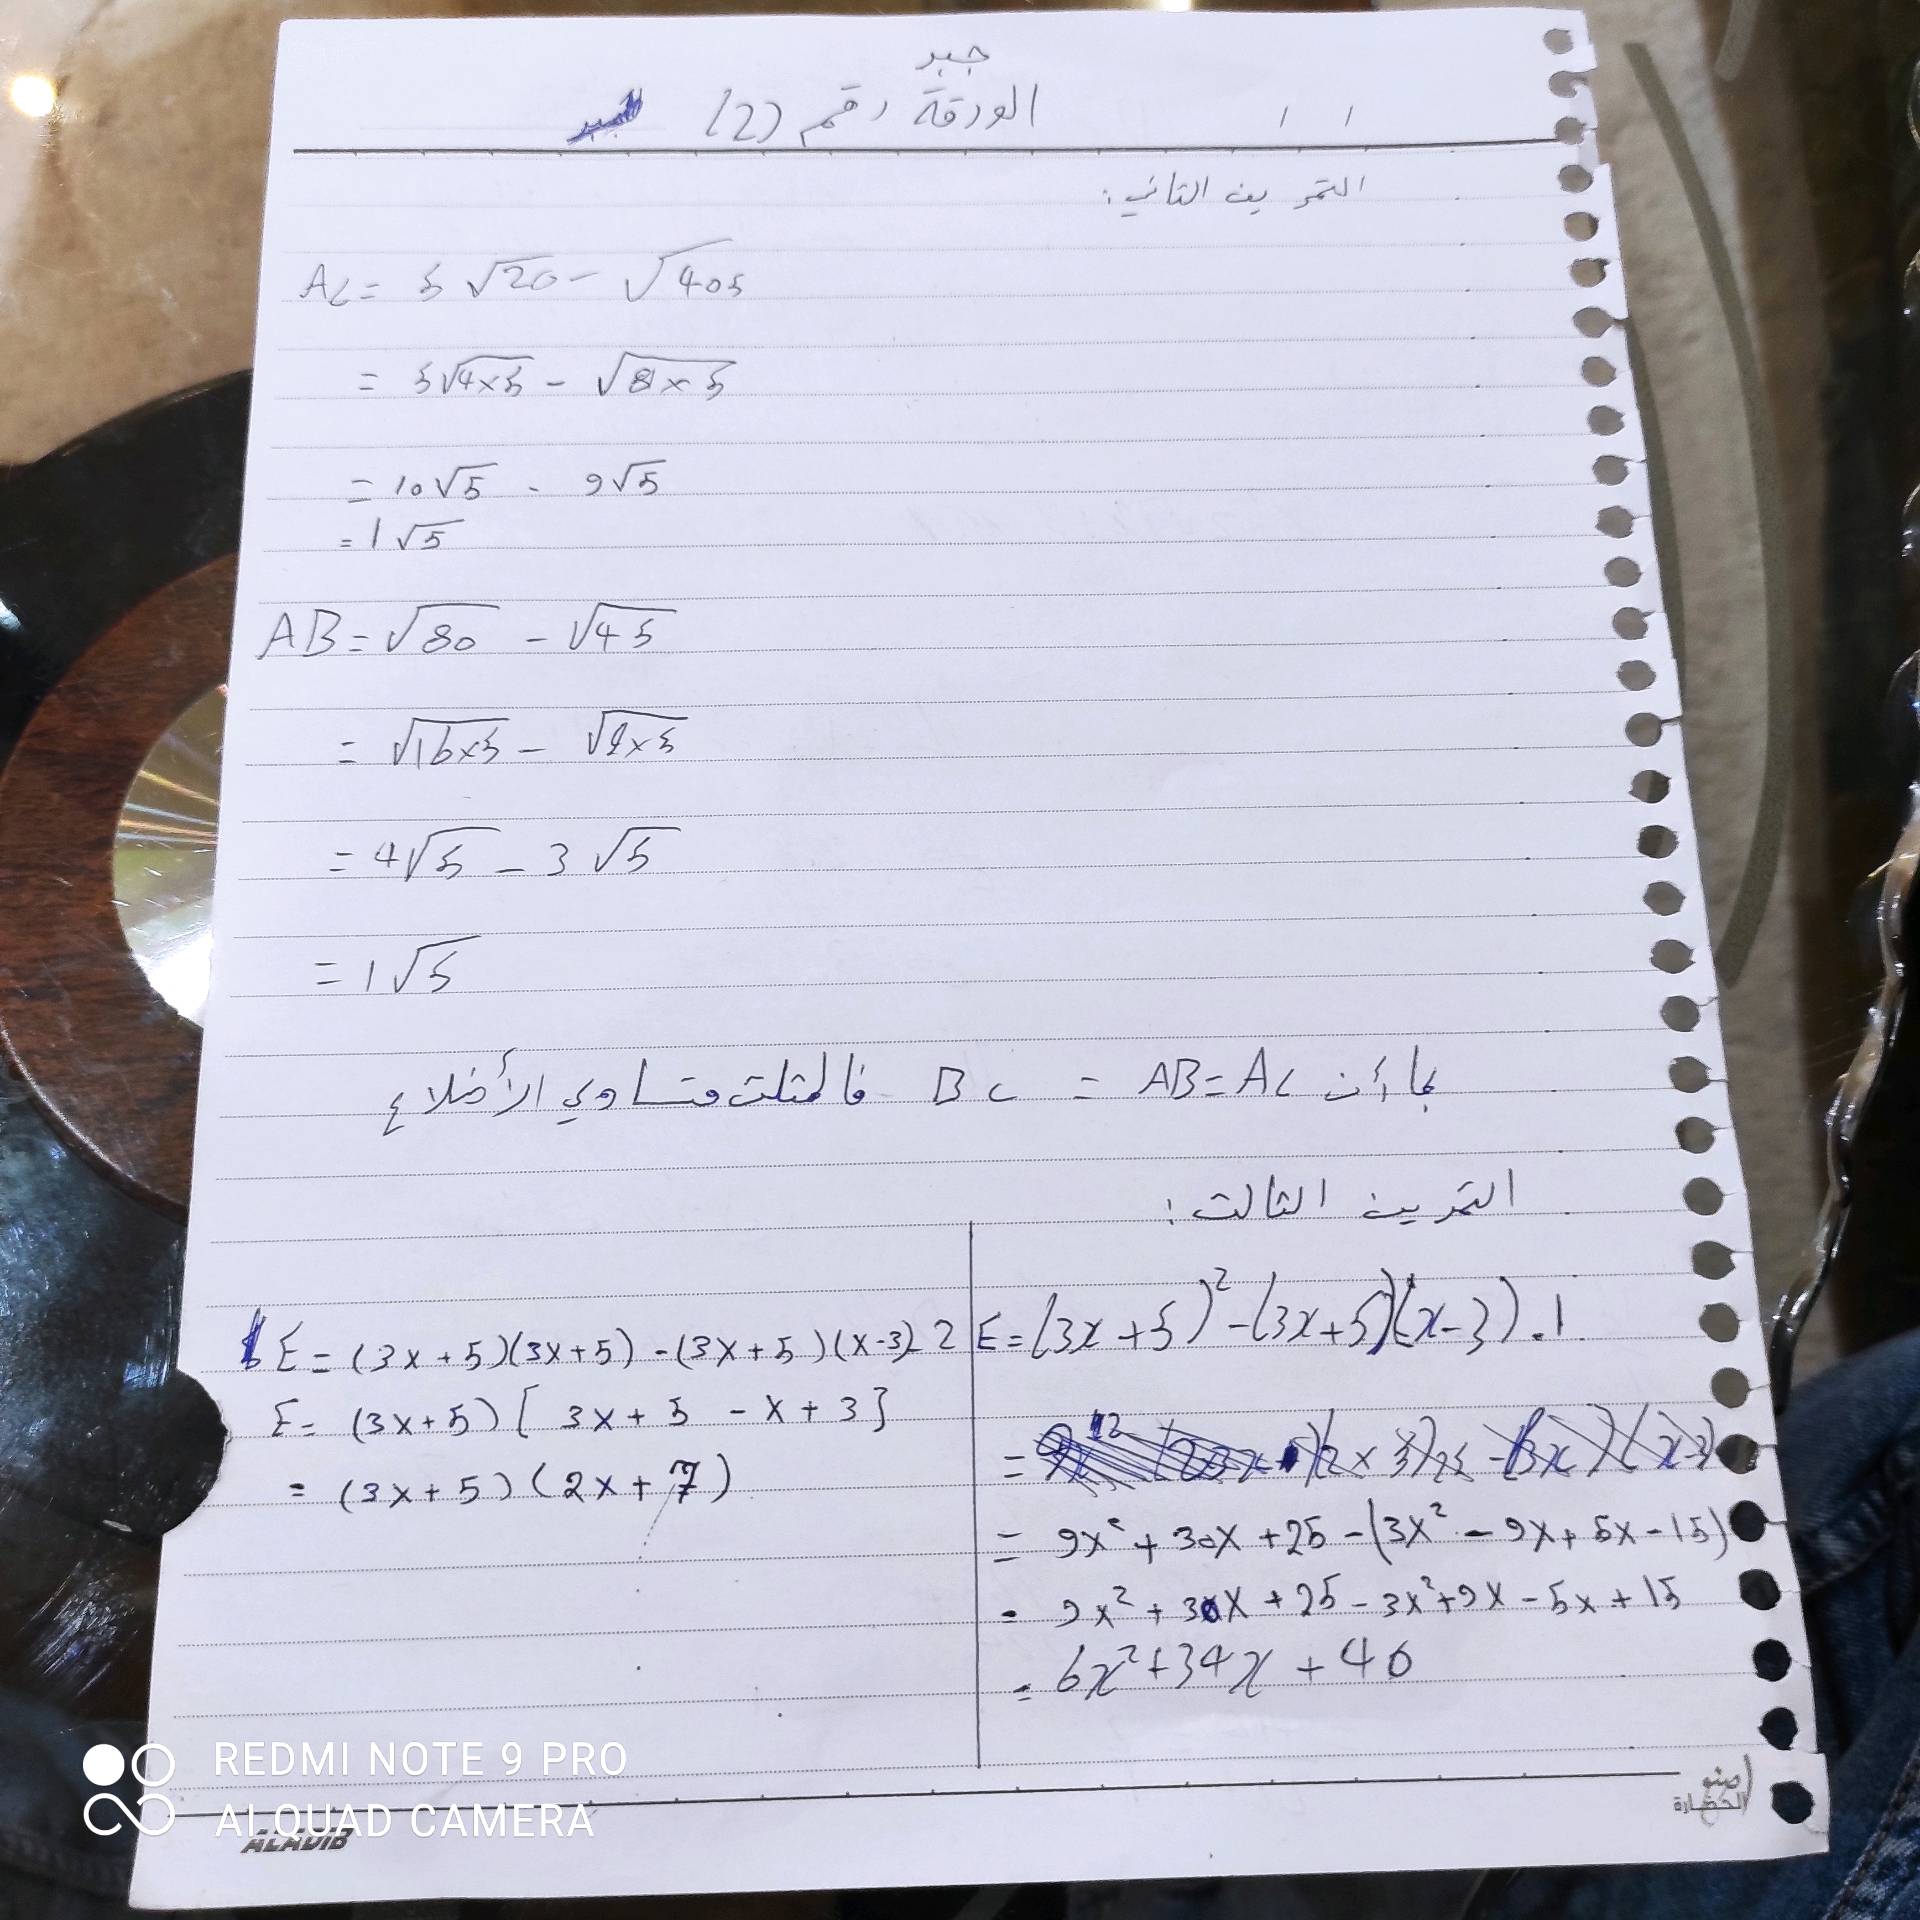 جبر
الورقة رقم (2)
/ /
التمرين الثاني:
AC = 5√20 - √405
= 5√4×5 - √81×5
= 10√5 - 9√5
= 1√5
AB = √80 - √45
= √16×5 - √9×5
= 4√5 - 3√5
= 1√5
بما أن AB = AC = BC فالمثلث متساوي الأضلاع
التمرين الثالث:
1. E = (3x+5)² - (3x+5)(x-3)
= 9x² + 30x + 25 - (3x² - 9x + 5x - 15)
= 9x² + 30x + 25 - 3x² + 9x - 5x + 15
= 6x² + 34x + 40
2 E = (3x+5)(3x+5) - (3x+5)(x-3)
E = (3x+5)[3x+5 - x+3]
= (3x+5)(2x+7)
REDMI NOTE 9 PRO
AI QUAD CAMERA
ALADIB
الحضارة